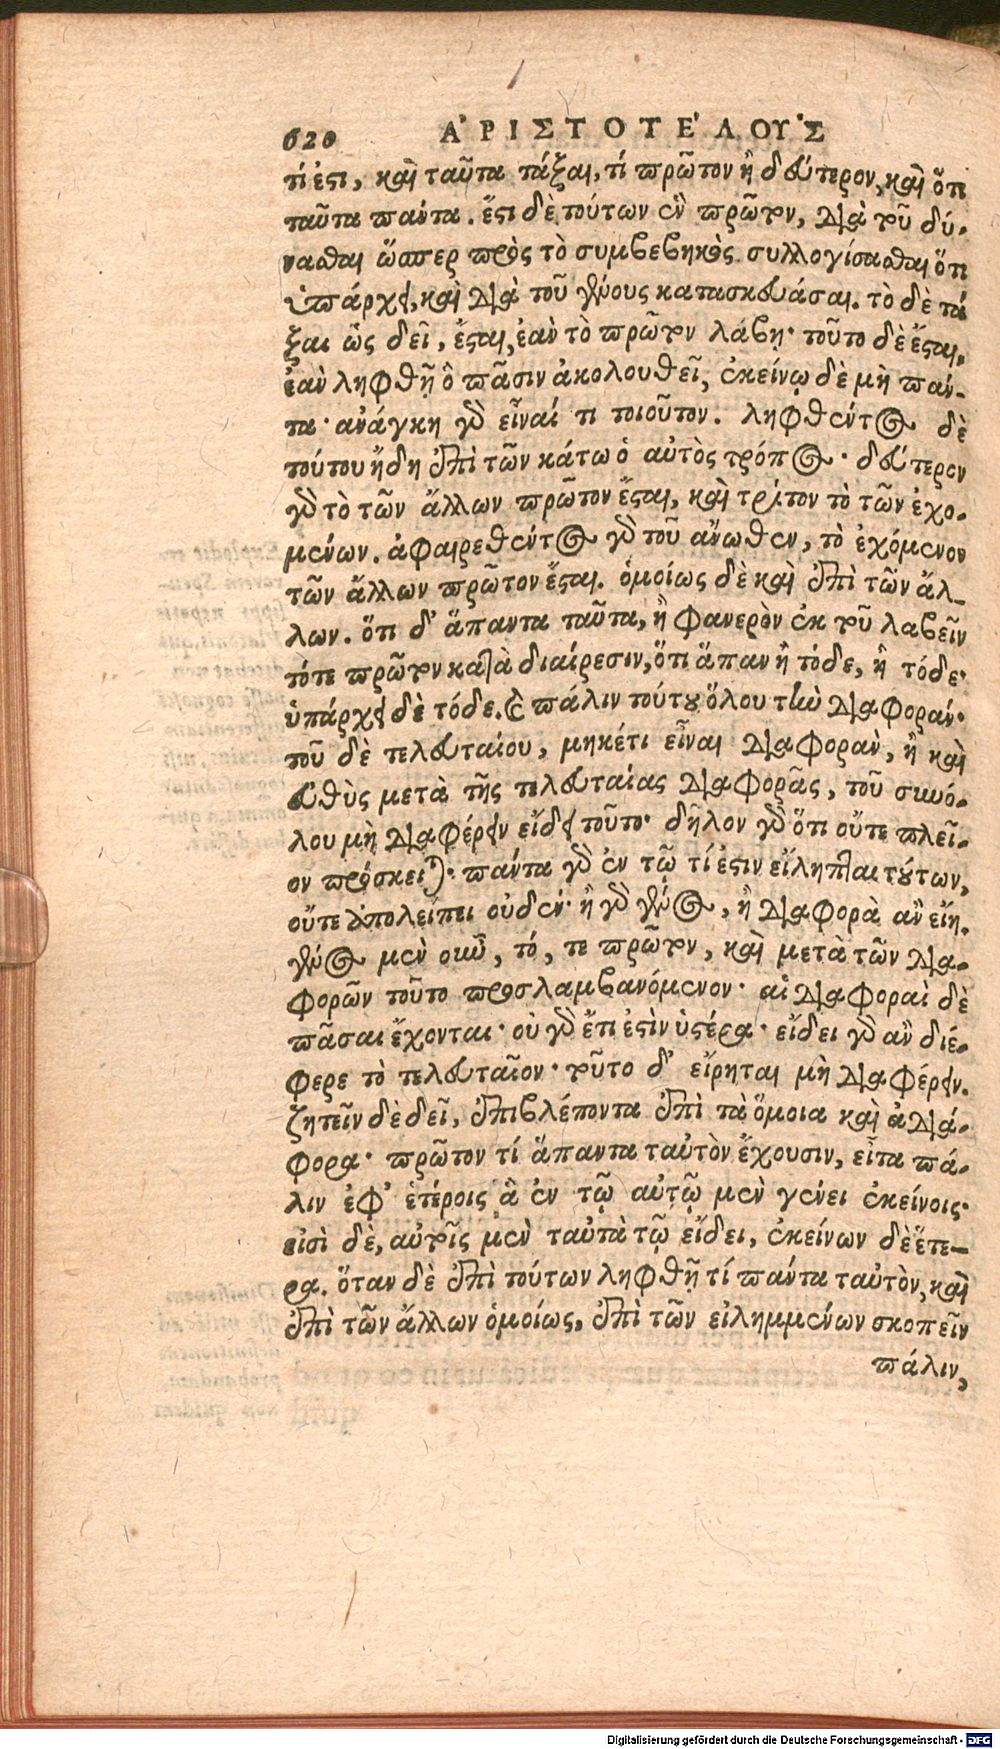 620 ἈΡΙΣΤΟΤΈΛΟΥΣ
τί ἐστι, καὶ ταῦτα τάξαι, τί πρῶτον ἢ δεύτερον, καὶ ὅτι
ταῦτα πάντα. ἔστι δὲ τούτων ἓν πρῶτον, διὰ τοῦ δύ-
νασθαι ὥσπερ πρὸς τὸ συμβεβηκὸς συλλογίσασθαι ὅτι
ὑπάρχει, καὶ διὰ τοῦ γένους κατασκευάσαι. τὸ δὲ τά
ξαι ὡς δεῖ, ἔσται, ἐὰν τὸ πρῶτον λάβῃ· τοῦτο δὲ ἔσται,
ἐὰν ληφθῇ ὃ πᾶσιν ἀκολουθεῖ, ἐκείνῳ δὲ μὴ πάν-
τα· ἀνάγκη γὰρ εἶναί τι τοιοῦτον. ληφθέντος δὲ
τούτου ἤδη ἐπὶ τῶν κάτω ὁ αὐτὸς τρόπος· δεύτερον
γὰρ τὸ τῶν ἄλλων πρῶτον ἔσται, καὶ τρίτον τὸ τῶν ἐχο-
μένων. ἀφαιρεθέντος γὰρ τοῦ ἄνωθεν, τὸ ἐχόμενον
τῶν ἄλλων πρῶτον ἔσται. ὁμοίως δὲ καὶ ἐπὶ τῶν ἄλ-
λων. ὅτι δ' ἅπαντα ταῦτα, ἢ φανερὸν ἐκ τοῦ λαβεῖν
τότε πρῶτον κατὰ διαίρεσιν, ὅτι ἅπαν ἢ τόδε, ἢ τόδε·
ὑπάρχει δὲ τόδε. καὶ πάλιν τούτου ὅλου τὴν διαφοράν·
τοῦ δὲ τελευταίου, μηκέτι εἶναι διαφορὰν, ἢ καὶ
εὐθὺς μετὰ τῆς τελευταίας διαφορᾶς, τοῦ συνό-
λου μὴ διαφέρειν εἴδει τοῦτο· δῆλον γὰρ ὅτι οὔτε πλεῖ-
ον πρόσκειται· πάντα γὰρ ἐν τῷ τί ἐστιν εἴληπται τούτων,
οὔτε ἀπολείπει οὐδέν· ἢ γὰρ γένος, ἢ διαφορὰ ἂν εἴη.
γένος μὲν οὖν, τό, τε πρῶτον, καὶ μετὰ τῶν δια-
φορῶν τοῦτο προσλαμβανόμενον· αἱ διαφοραὶ δὲ
πᾶσαι ἔχονται· οὐ γὰρ ἔτι ἐστὶν ὑστέρα· εἴδει γὰρ ἂν διέ-
φερε τὸ τελευταῖον· τοῦτο δ' εἴρηται μὴ διαφέρειν.
ζητεῖν δὲ δεῖ, ἐπιβλέποντα ἐπὶ τὰ ὅμοια καὶ ἀδιά-
φορα· πρῶτον τί ἅπαντα ταὐτὸν ἔχουσιν, εἶτα πά-
λιν ἐφ' ἑτέροις ἃ ἐν τῷ αὐτῷ μὲν γένει ἐκείνοις·
εἰσὶ δὲ, αὑτοῖς μὲν ταὐτὰ τῷ εἴδει, ἐκείνων δὲ ἕτε-
ρα. ὅταν δὲ ἐπὶ τούτων ληφθῇ τί πάντα ταὐτὸν, καὶ
ἐπὶ τῶν ἄλλων ὁμοίως, ἐπὶ τῶν εἰλημμένων σκοπεῖν
πάλιν,
Digitalisierung gefördert durch die Deutsche Forschungsgemeinschaft - DFG